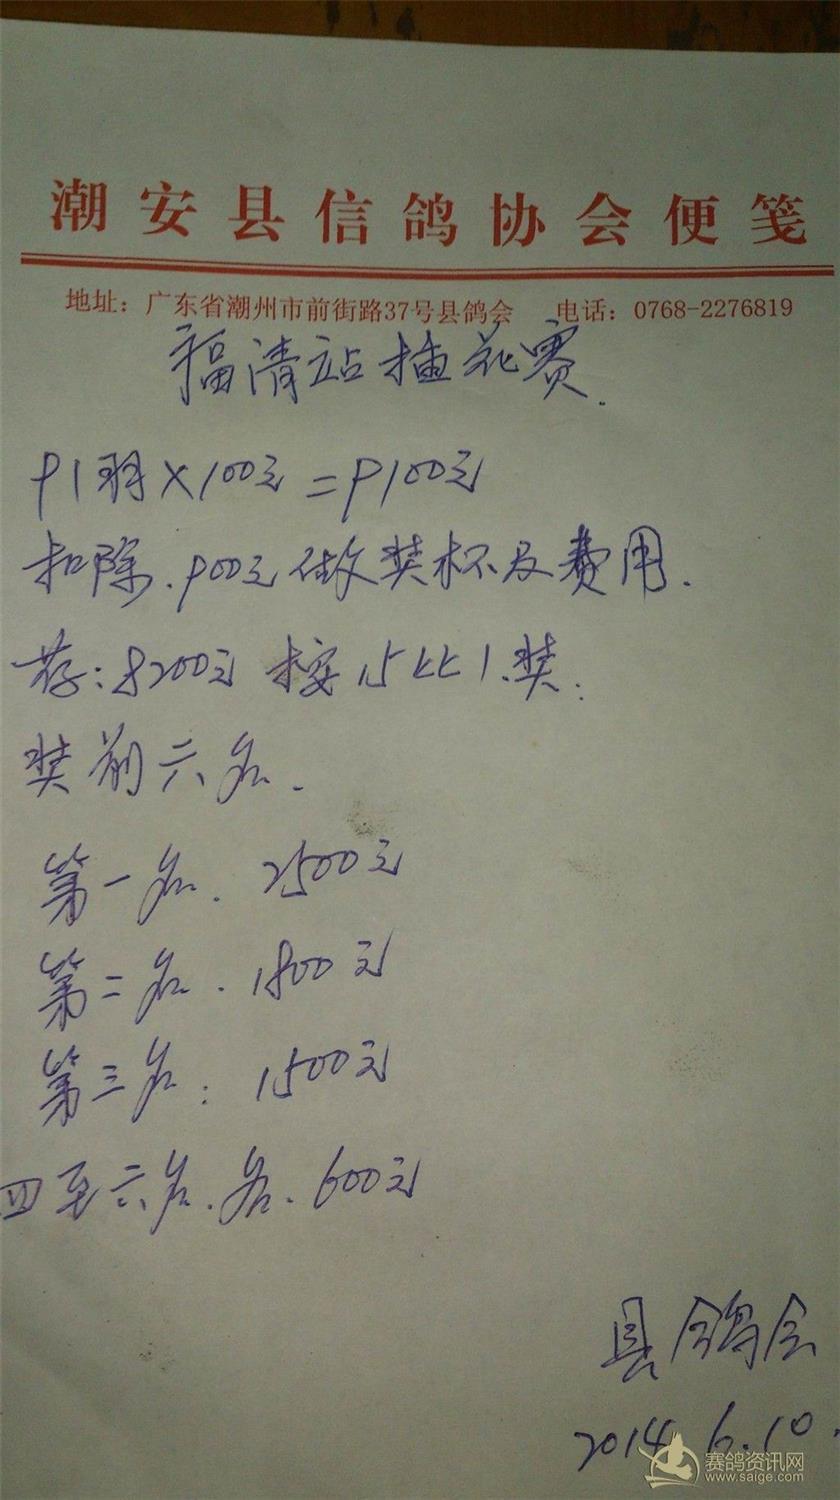 潮安县信鸽协会便笺
地址：广东省潮州市前街路37号县鸽会 电话：0768-2276819
福清站插花赛.
91羽×100元=9100元
扣除.900元做奖杯及费用.
存:8200元按15比1.奖:
奖前六名.
第一名. 2500元
第二名. 1800元
第三名: 1500元
四至六名.各.600元
县鸽会
2014.6.10.
赛鸽资讯网
www.saige.com